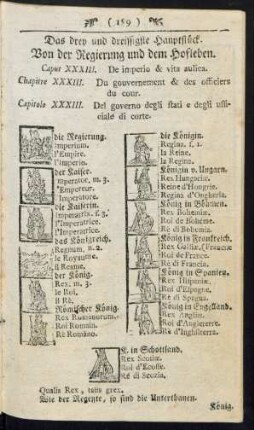 ( 189 )
Das drey und dreissigste Hauptstück.
Von der Regierung und dem Hofleben.
Caput XXXIII. De imperio & vita aulica.
Chapitre XXXIII. Du gouvernement & des officiers
du cour.
Capitolo XXXIII. Del governo degli stati e degli uffi-
ciale di corte.
die Regierung.
Imperium.
l'Empire.
l'Imperio.
der Kaiser.
Imperator, m. 3.
l'Empereur.
l'Imperatore.
die Kaiserin.
Imperatrix. f. 3.
l'Imperatrice.
l'Imperatrice.
das Königreich.
Regnum, n. 2.
le Royaume.
il Reame.
der König.
Rex, m. 3.
le Roi.
Il Rè.
Römischer König.
Rex Romanorum.
Roi Romain.
Rè Romàno.
die Königin.
Regina. f. 1.
la Reine.
la Regina.
König v. Ungarn.
Rex Hungariæ.
Reine d'Hongrie.
Regina d'Ongheria.
König in Böhmen.
Rex Bohemiæ.
Roi de Boheme.
Rè di Bohemia.
König in Frankreich.
Rex Galliæ, (Franciæ
Roi de France.
Rè di Francia.
König in Spanien.
Rex Hispaniæ.
Roi d'Espagne.
Rè di Spagna.
König in Engelland.
Rex Angliæ.
Roi d'Angleterre.
Rè d'Inghilterra.
K. in Schottland.
Rex Scotiæ.
Roi d'Ecosse.
Rè di Scozia.
Qualis Rex, talis grex.
Wie der Regente, so sind die Unterthanen.
König.